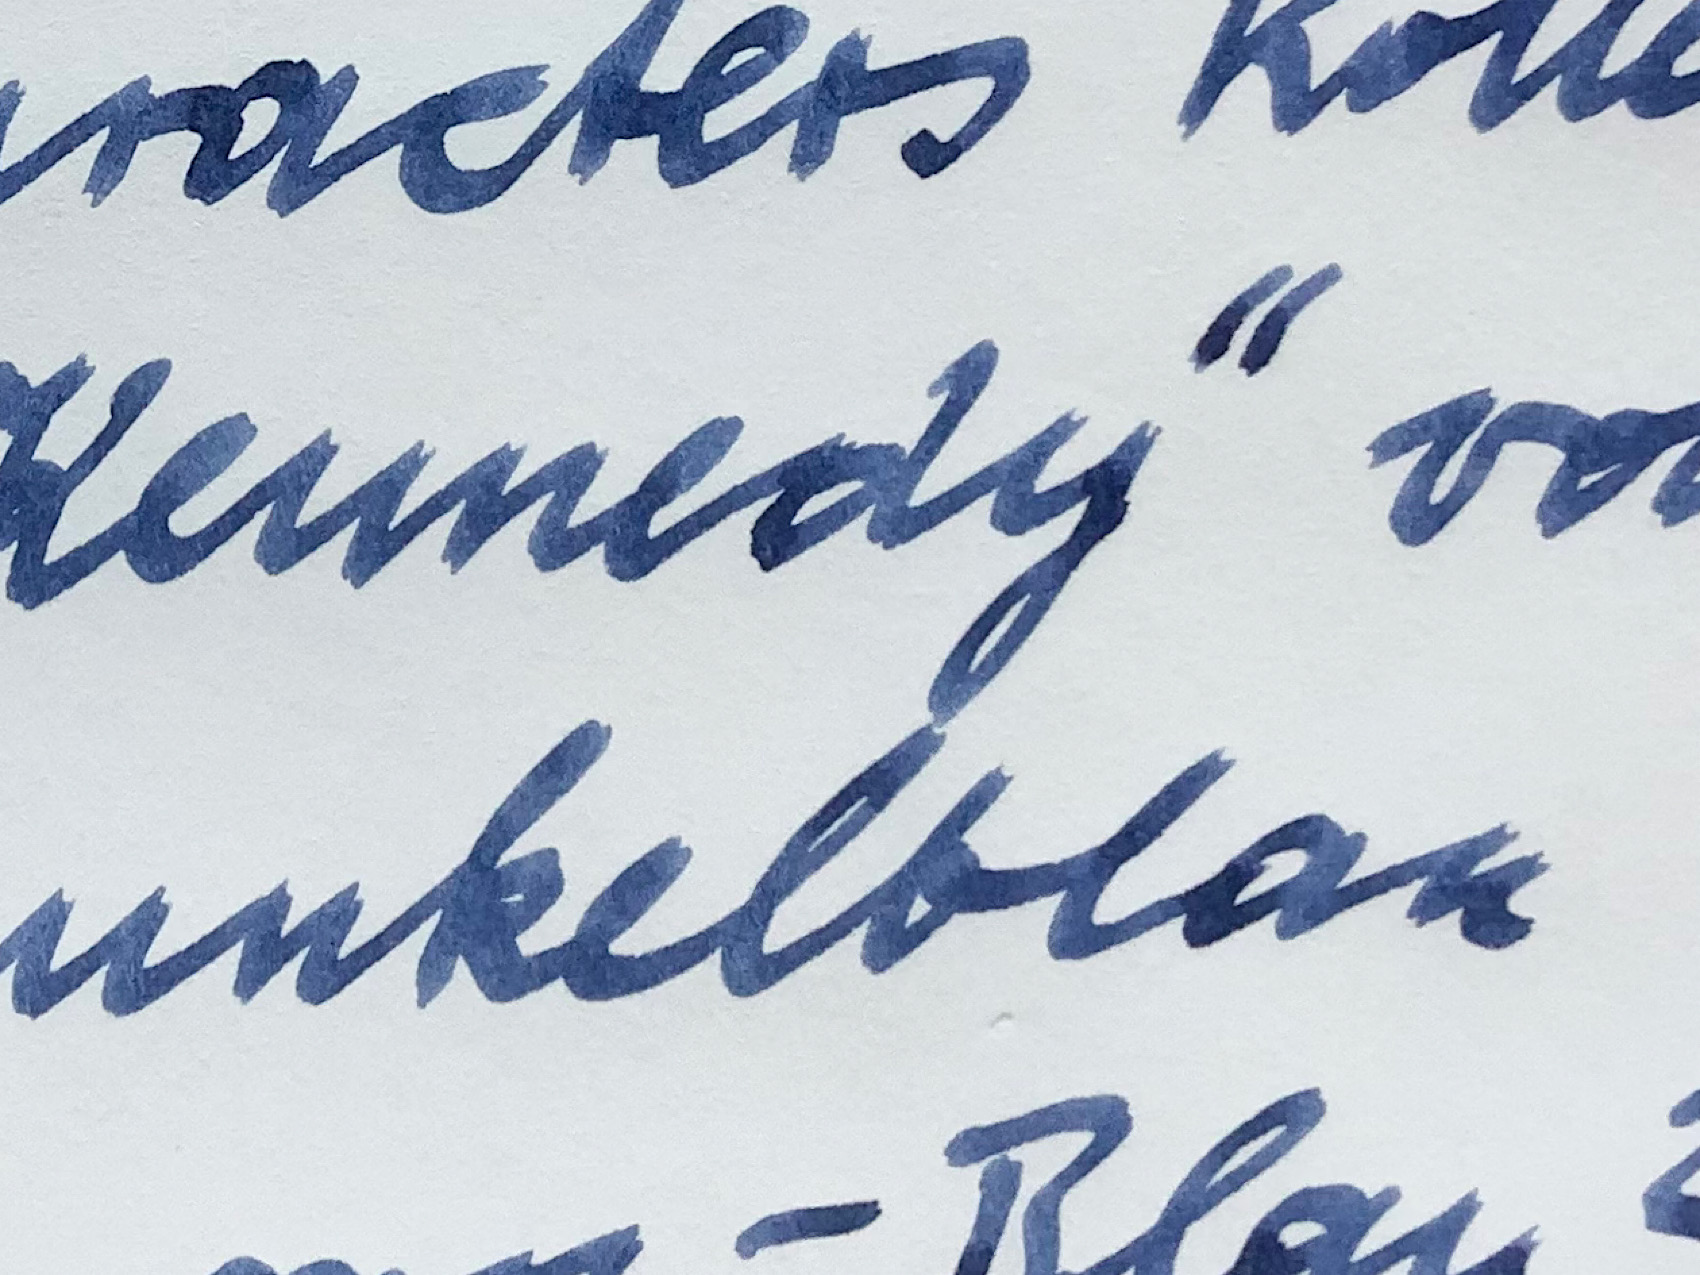 aracters Kolle
Kennedy“ von
unkelblau
- Blau